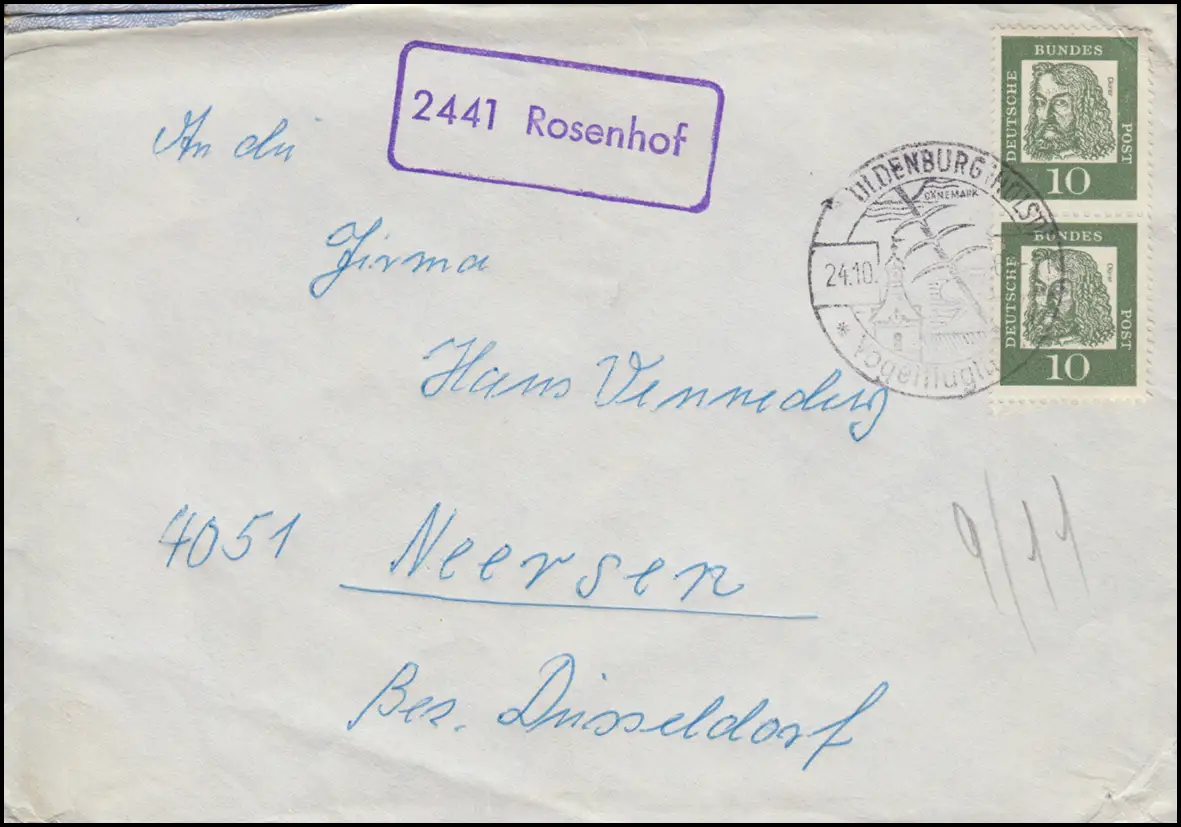 2441 Rosenhof
An die
Firma
Hans Vennedey
4051 Neersen
Bez. Düsseldorf
9/11
DEUTSCHE BUNDES POST
Dürer
10
DEUTSCHE BUNDES POST
Dürer
10
OLDENBURG (HOLST)
DÄNEMARK
24.10.